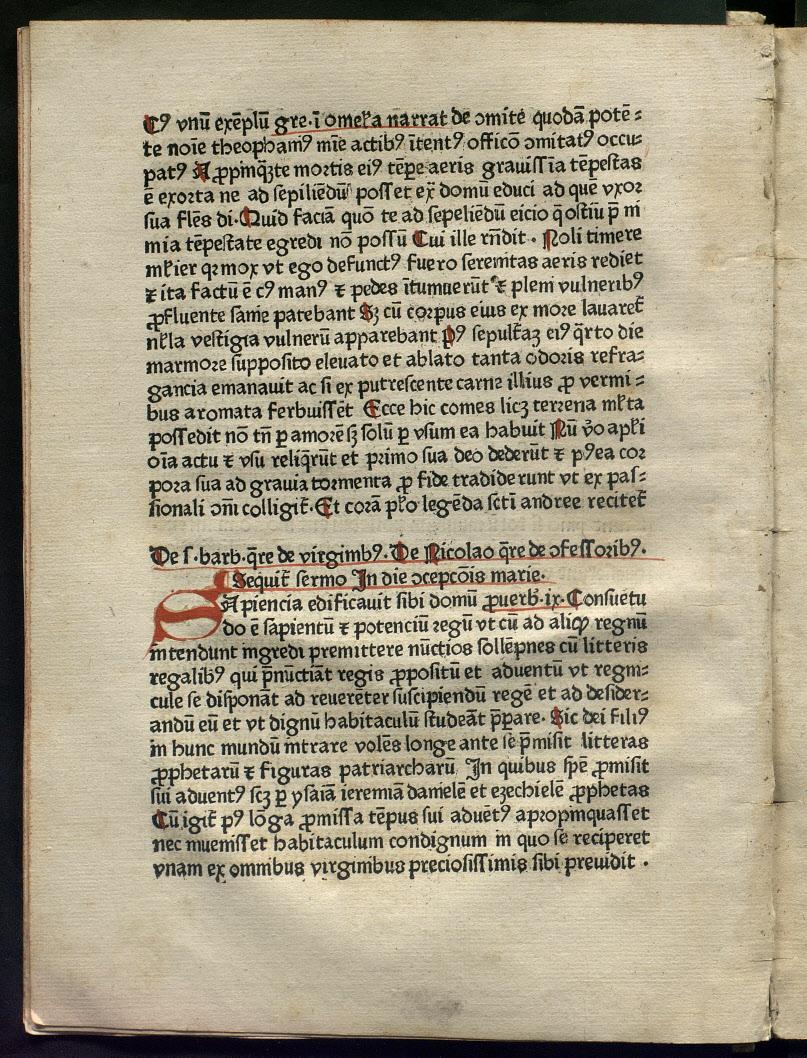 Cꝰ vnū exēplū gre·ī omeƚa narrat de ɔmite quodā potē⸗
te noīe theophamꝰ mīe actibꝰ ītentꝰ officō ɔmitatꝰ occu⸗
patꝰ A ꝓpīnqꝫte mortis eiꝰ tēpe aeris grauissīa tēpestas
ē exorta ne ad sepiliēdū posset ex̄ domū educi ad quē vxor
sua flēs di· Quid faciā quō te ad sepeliēdū eicio q̄ ostiū p̄ ni
mia tēpestate egredi nō possū Cui ille rn̄dit · Noli timere
mƚier qꝛ mox vt ego defunctꝰ fuero serenitas aeris rediet
⁊ ita factū ē cꝰ manꝰ ⁊ pedes ītumuerūt ⁊ pleni vulneribꝰ
ꝓfluente sanie patebant Sꝫ cū corpus eius ex more lauaret̄
nƚla vestigia vulnerū apparebant pꝰ sepulƚaꝫ eiꝰ q̄rto die
marmore supposito eleuato et ablato tanta odoris refra⸗
gancia emanauit ac si ex putrescente carne illius ꝓ vermi⸗
bus aromata ferbuissēt Ecce hic comes licꝫ terrena mƚta
possedit nō tn̄ p amorē sꝫ solū p vsum ea habuit Nū v̄o apƚi
oīa actu ⁊ vsu reliq̄rūt et primo sua deo dederūt ⁊ pꝰea cor
pora sua ad grauia tormenta ꝓ fide tradiderunt vt ex pas⸗
sionali ɔm̄i colligit̄· Et corā pƚo legēda scti andree recitet̄
De s·barb·q̄re de virginibꝰ· De Nicolao q̄re de ɔfessoribꝰ·
Sequit̄ sermo In die ɔcepcōis marie·
SApiencia edificauit sibi domū ꝓuerb·ix· Consuetu
do ē sapientū ⁊ potenciū regū vt cū ad aliqꝺ regnū
intendunt ingredi premittere nūctios sollēpnes cū litteris
regalibꝰ qui p̄nūctiāt regis ꝓpositū et aduentū vt regni⸗
cule se disponāt ad reuerēter suscipiendū regē et ad desider⸗
andū eū et vt dignū habitaculū studeāt p̄pare· Sic dei filiꝰ
in hunc mundū intrare volēs longe ante sē p̄misit litteras
ꝓphetarū ⁊ figuras patriarcharū In quibus spē ꝓmisit
sui aduentꝰ scꝫ p ysaiā ieremiā danielē et eꝫechielē ꝓphetas
Cū igit̄ pꝰ lōga ꝓmissa tēpus sui aduētꝰ apropinquasset
nec inuenisset habitaculum condignum in quo se reciperet
vnam ex omnibus virginibus preciosissimis sibi preuidit ·